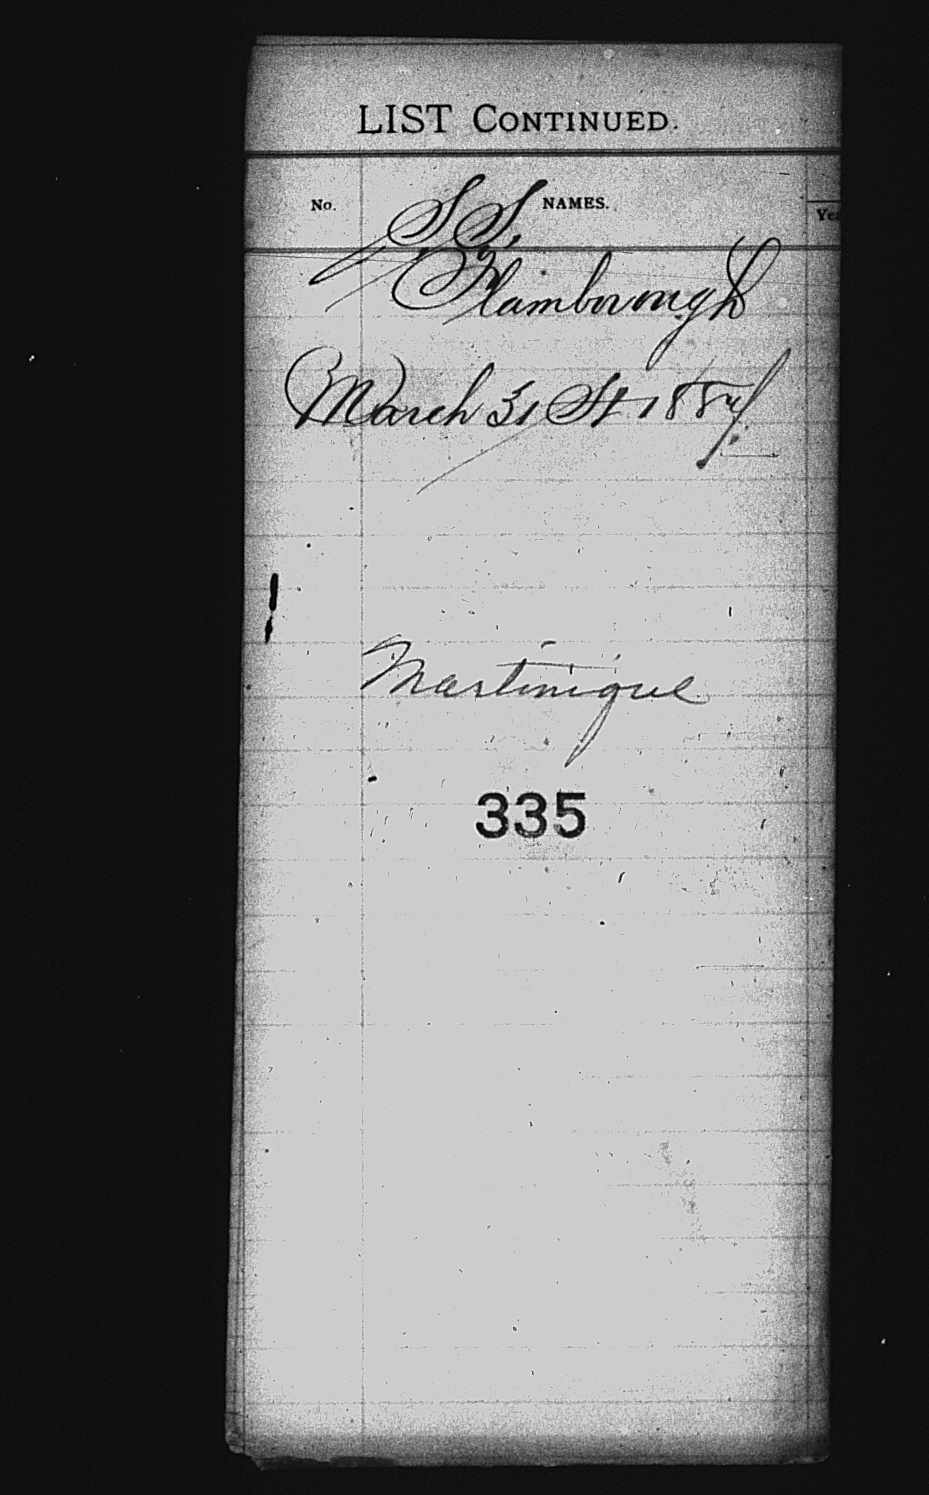 LIST CONTINUED.
No. NAMES. Yea
S. S.
Flamborough
March 31 St 1884
Martinique
335